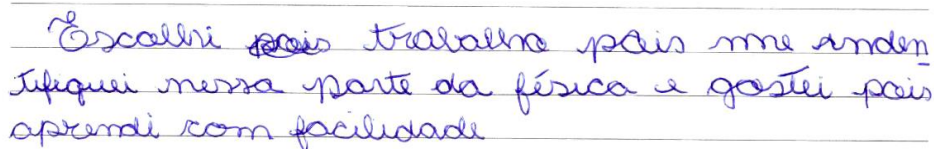 Escolhi pois trabalho pois me inden
tifiquei nessa parte da física e gostei pois
aprendi com facilidade